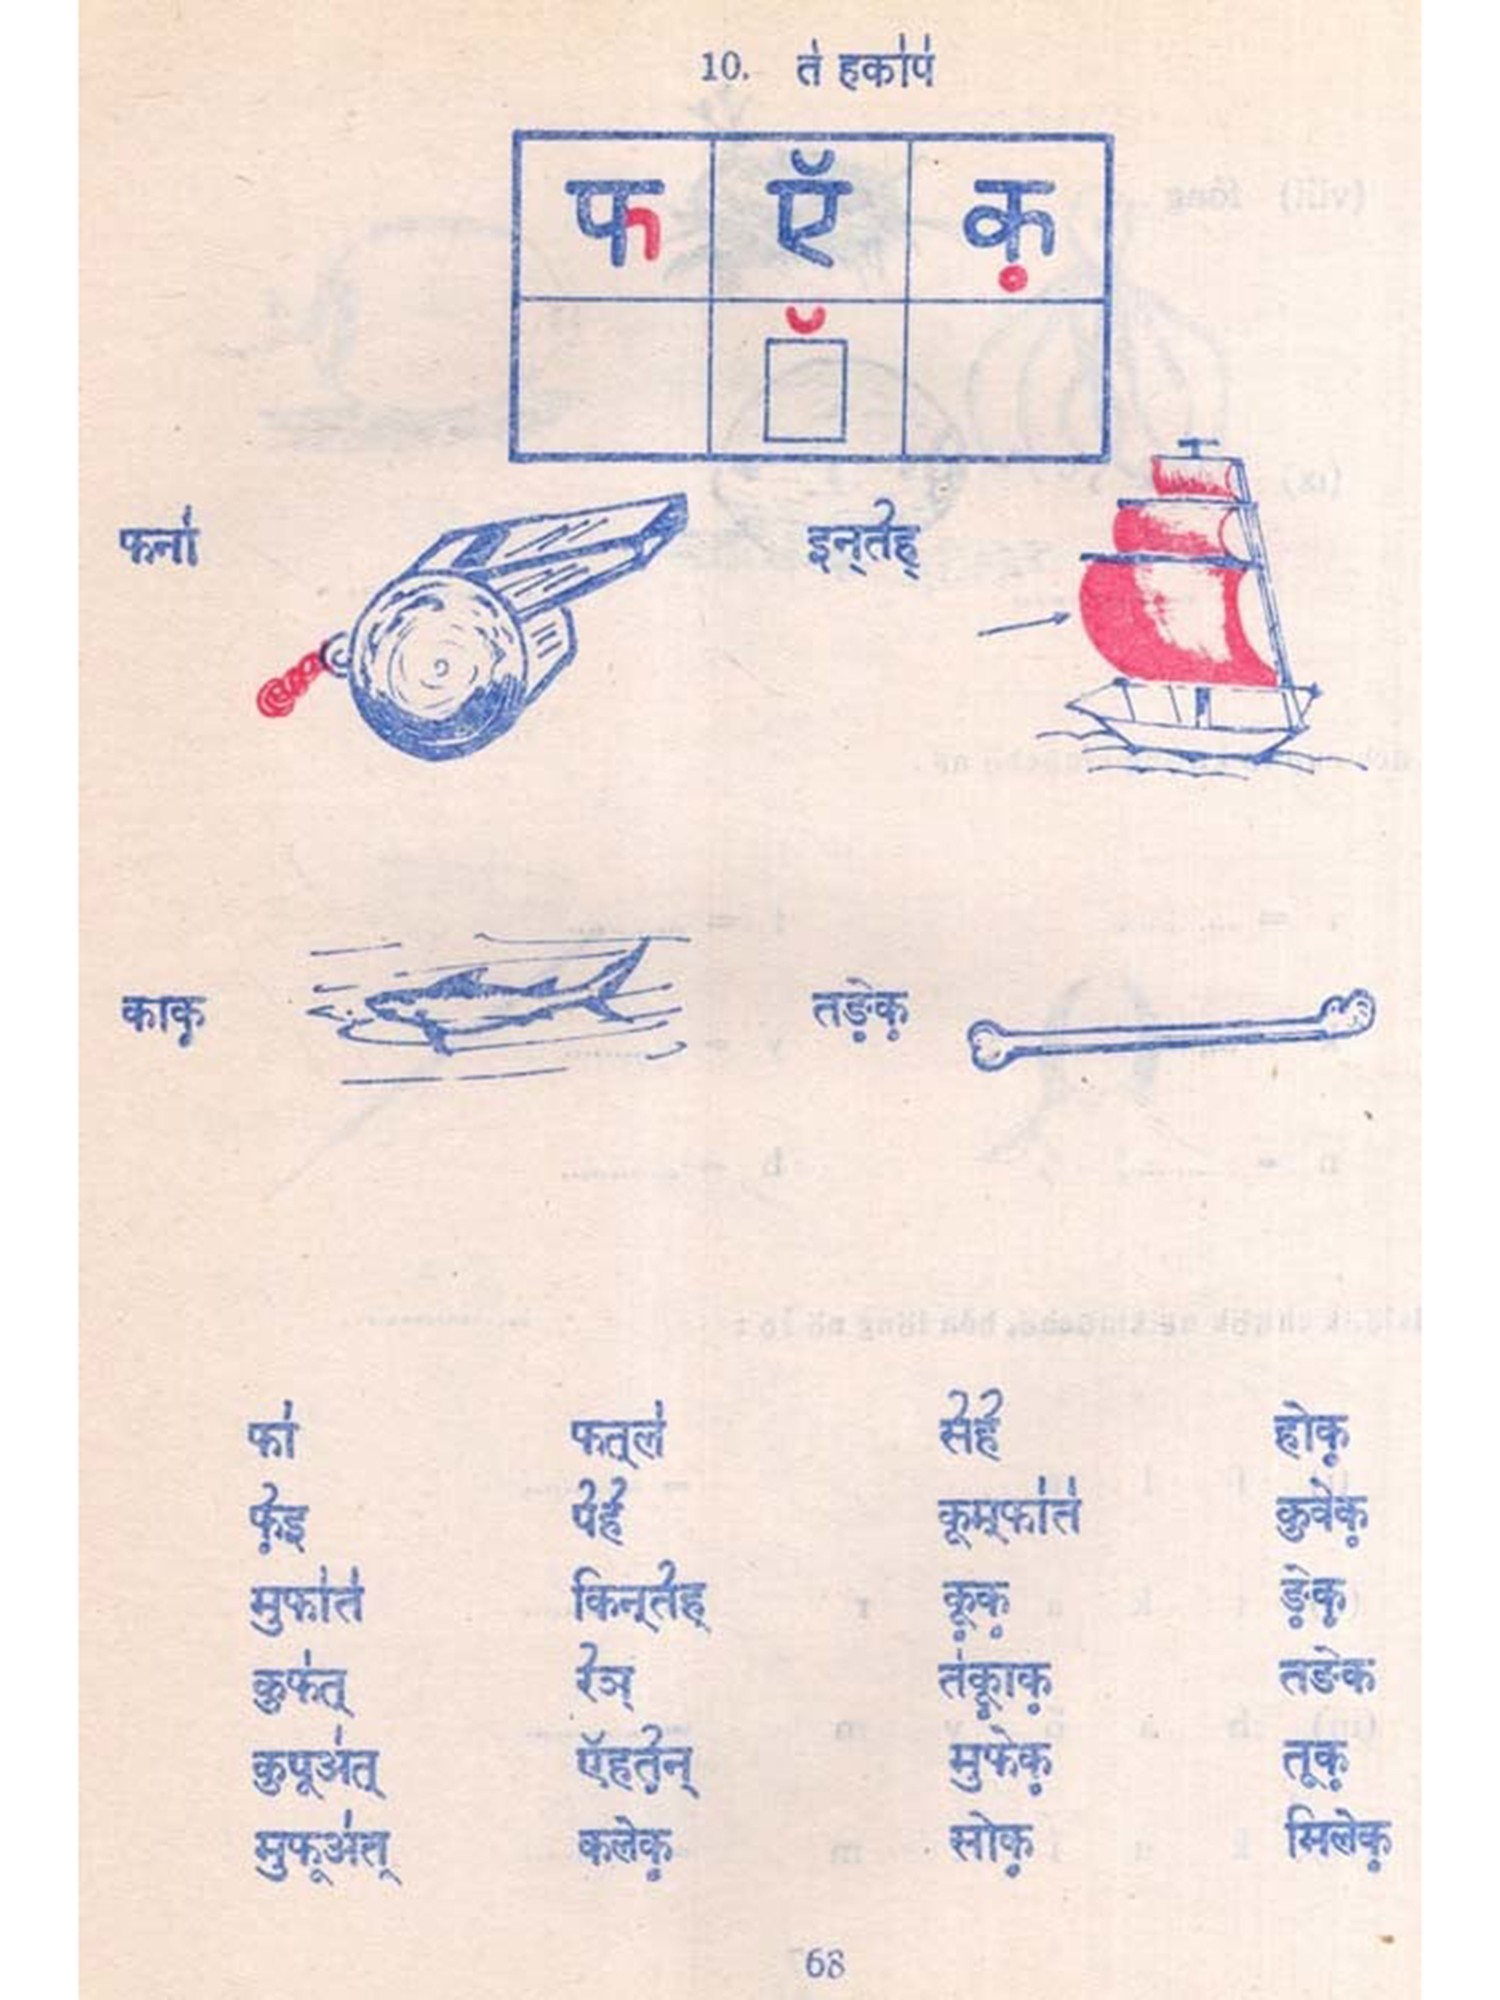 10. त॑ हका॑प॑
फ ऍ क़
फना॑ इन्तेॆह्
काक़ तङ़ेक़
फा॑ फतूल॑ सेॆहेॆ होक़
फ़ेॆइ पेॆहेॆ कूमूफा॑त॑ कुवेक़
मुफा॑त॑ किन्तेॆह् क़ूक़ ङ़ेक़
कुफ॑त् रेॆञ् त॑क़ूाक़ तङेक
कुपूअ॑त् ऍहत़ेॆन् मुफेक़ तूक़
मुफूअ॑त् कलेक़ सोक़ मिलेक़
68